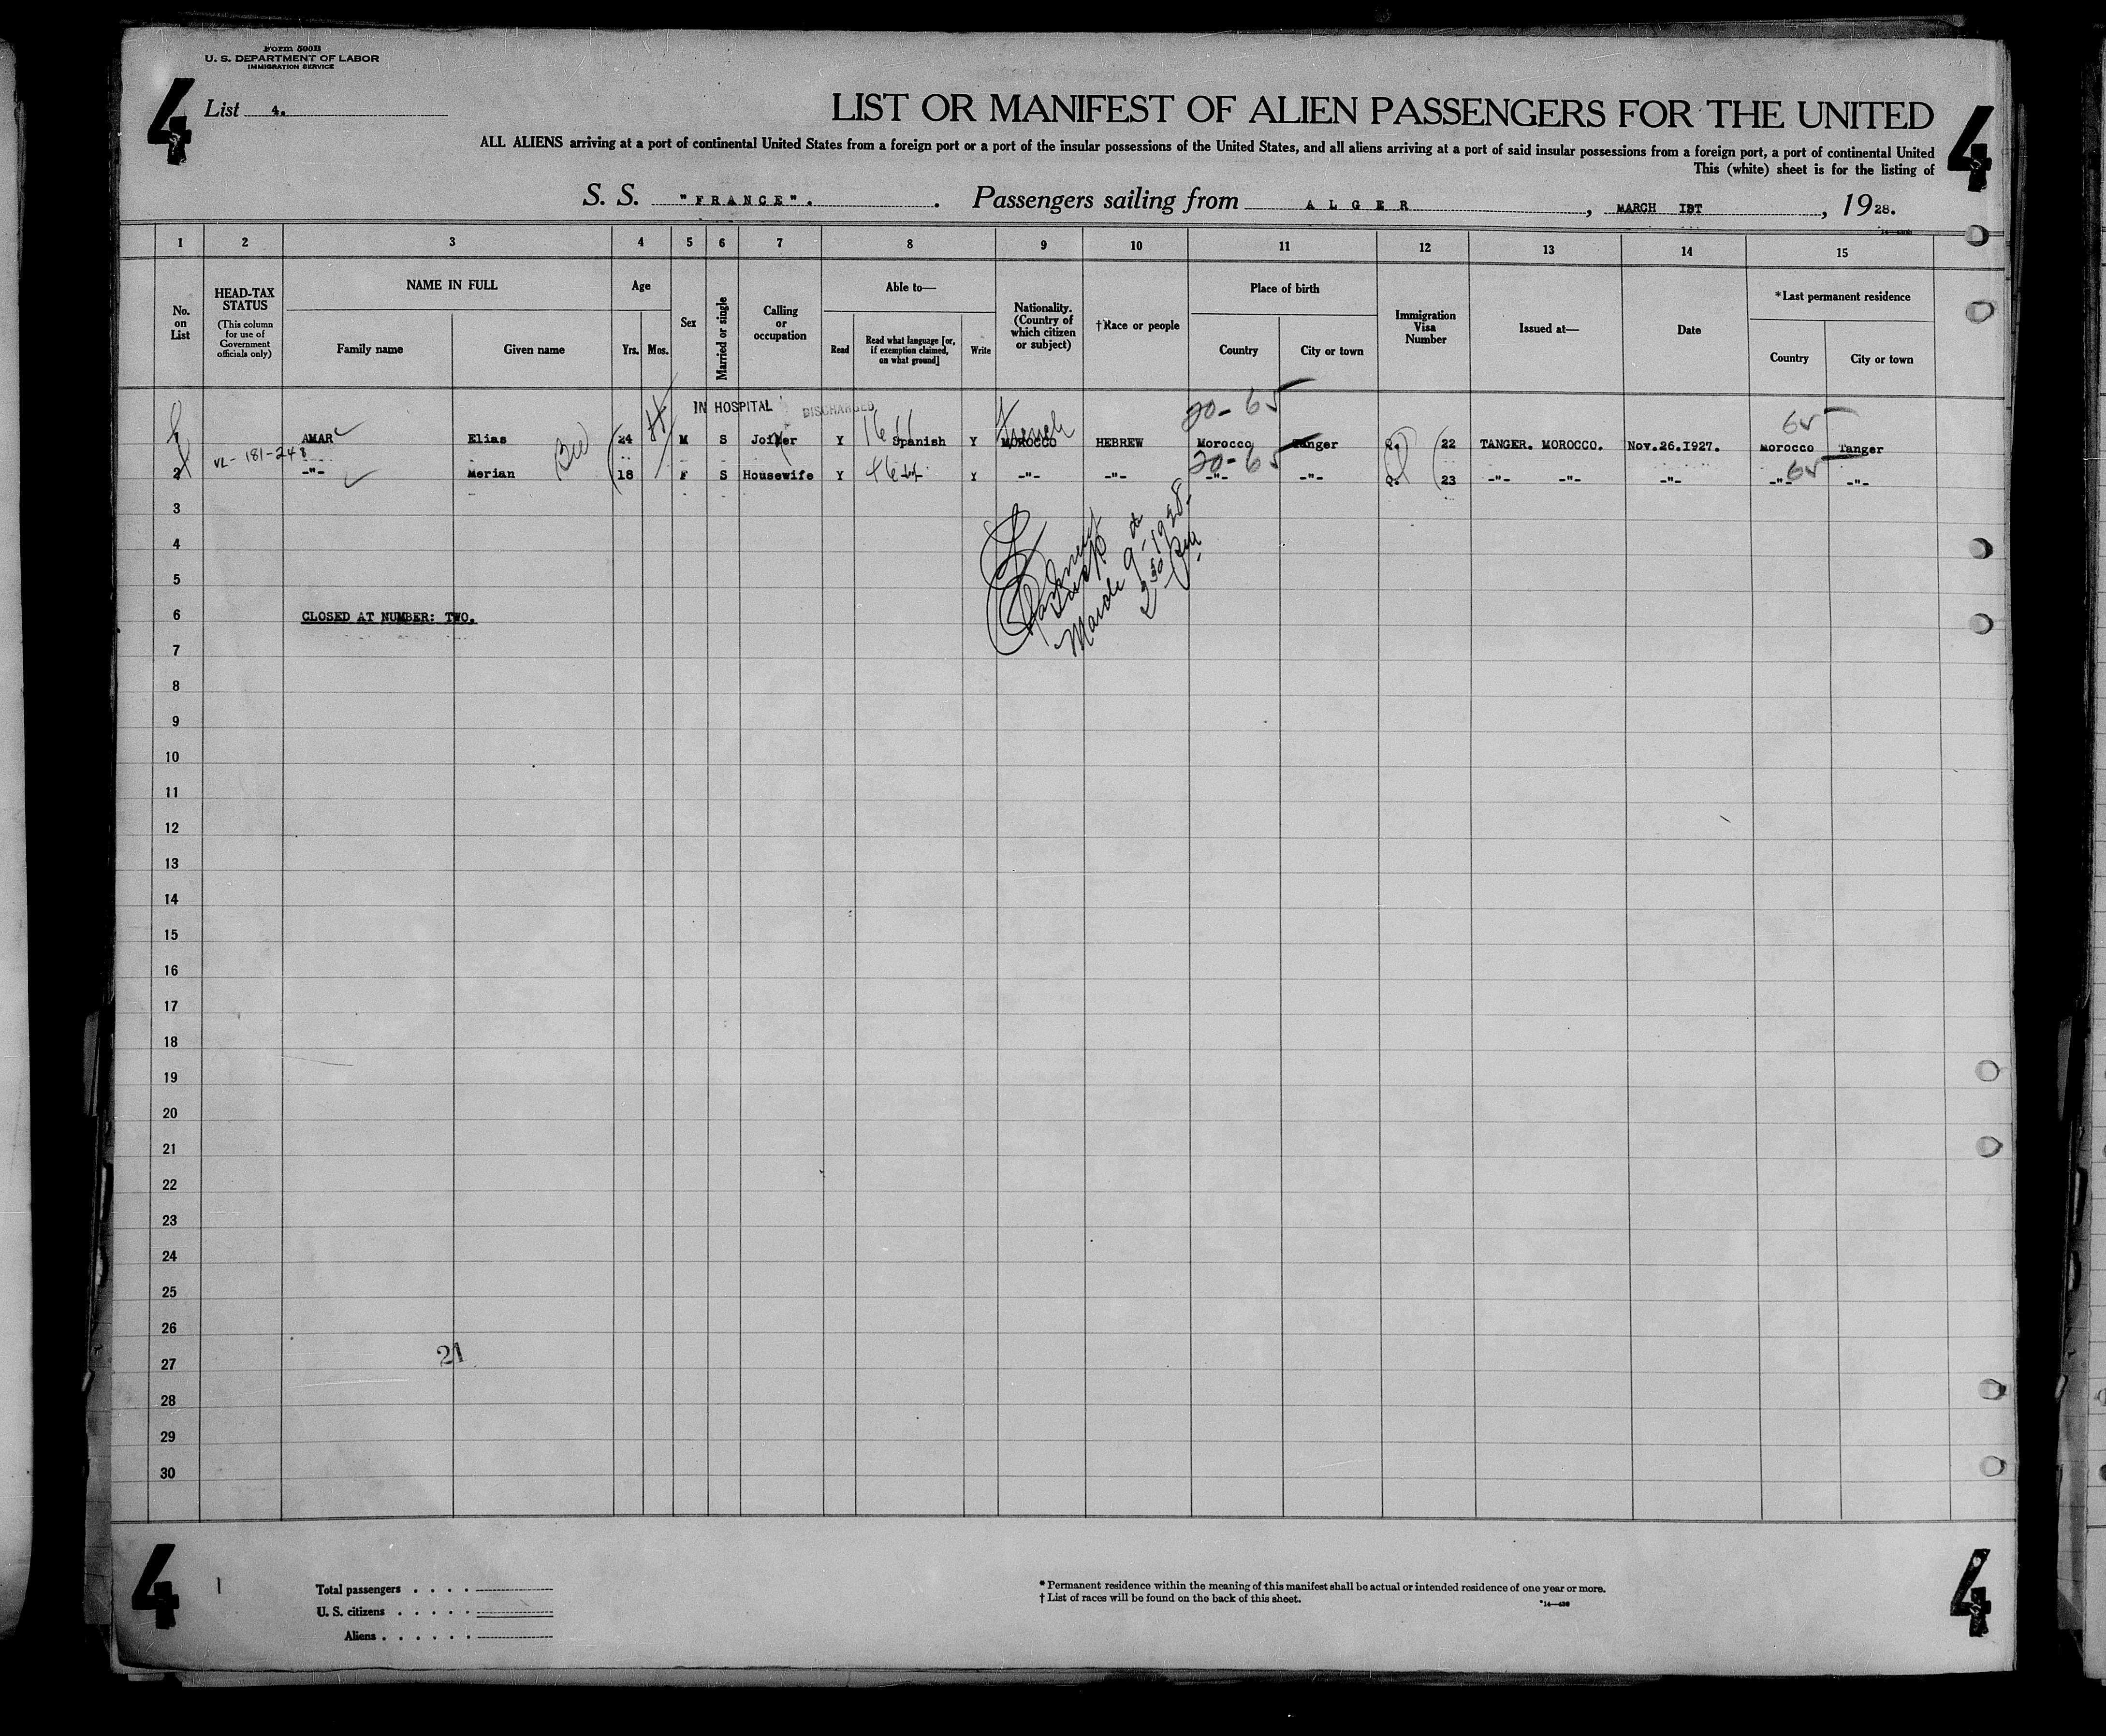 Form 500B
U. S. DEPARTMENT OF LABOR
IMMIGRATION SERVICE
4
List 4.
LIST OR MANIFEST OF ALIEN PASSENGERS FOR THE UNITED
4
ALL ALIENS arriving at a port of continental United States from a foreign port or a port of the insular possessions of the United States, and all aliens arriving at a port of said insular possessions from a foreign port, a port of continental United
This (white) sheet is for the listing of
S. S. "FRANCE". Passengers sailing from ALGER, MARCH IST, 1928.
1 2 3 4 5 6 7 8 9 10 11 12 13 14 15
No. on List
HEAD-TAX STATUS
(This column for use of Government officials only)
NAME IN FULL
Family name
Given name
Age
Yrs.
Mos.
Sex
Married or single
Calling or occupation
Able to—
Read
Read what language [or, if exemption claimed, on what ground]
Write
Nationality. (Country of which citizen or subject)
†Race or people
Place of birth
Country
City or town
Immigration Visa Number
Issued at—
Date
*Last permanent residence
Country
City or town
IN HOSPITAL DISCHARGED 20-65
French 65
AMAR Elias 24 M S Joiner Y Spanish Y MOROCCO HEBREW Morocco Tanger Q. 22 TANGER. MOROCCO. Nov.26.1927. Morocco Tanger
VL-181-248
20-65 65
2 -"- Merian 18 F S Housewife Y -"- Y -"- -"- -"- -"- Q. 23 -"- -"- -"- -"- -"-
3
4
5
March 9th 1928
6 CLOSED AT NUMBER: TWO.
7
8
9
10
11
12
13
14
15
16
17
18
19
20
21
22
23
24
25
26
21
27
28
29
30
4
1
Total passengers . . . .
U. S. citizens . . . . .
Aliens . . . . . .
* Permanent residence within the meaning of this manifest shall be actual or intended residence of one year or more.
† List of races will be found on the back of this sheet.
14—430
4